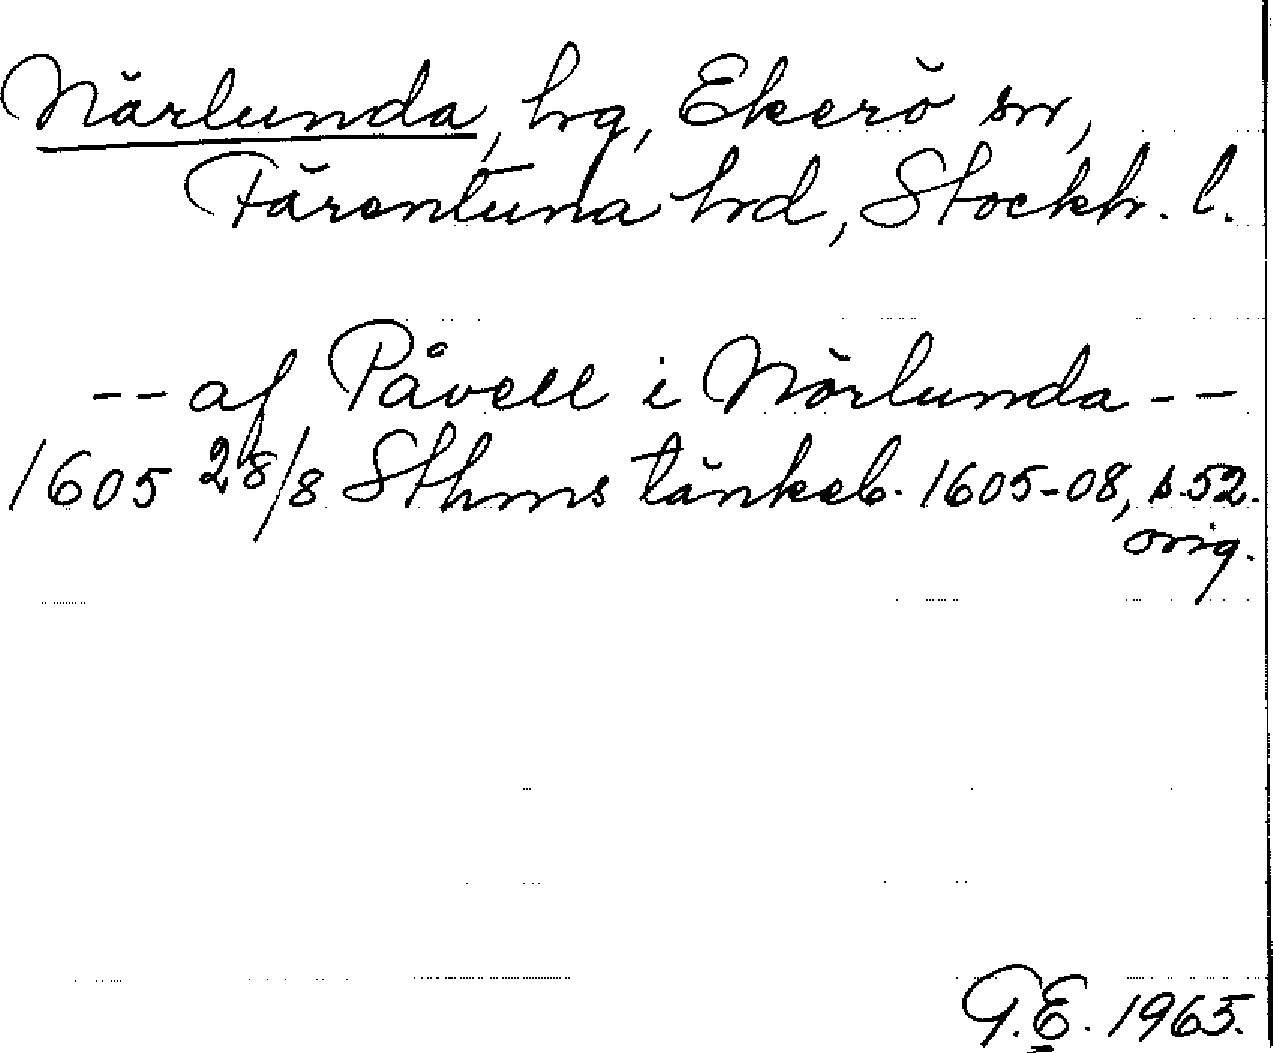 Närlunda, hrg, Ekerö sn,
Färentuna hrd, Stockh. l.
-- af Påvell i Nörlunda --
1605 28/8 Sthms tänkeb. 1605-08, s. 52.
orig.
G.E. 1965.